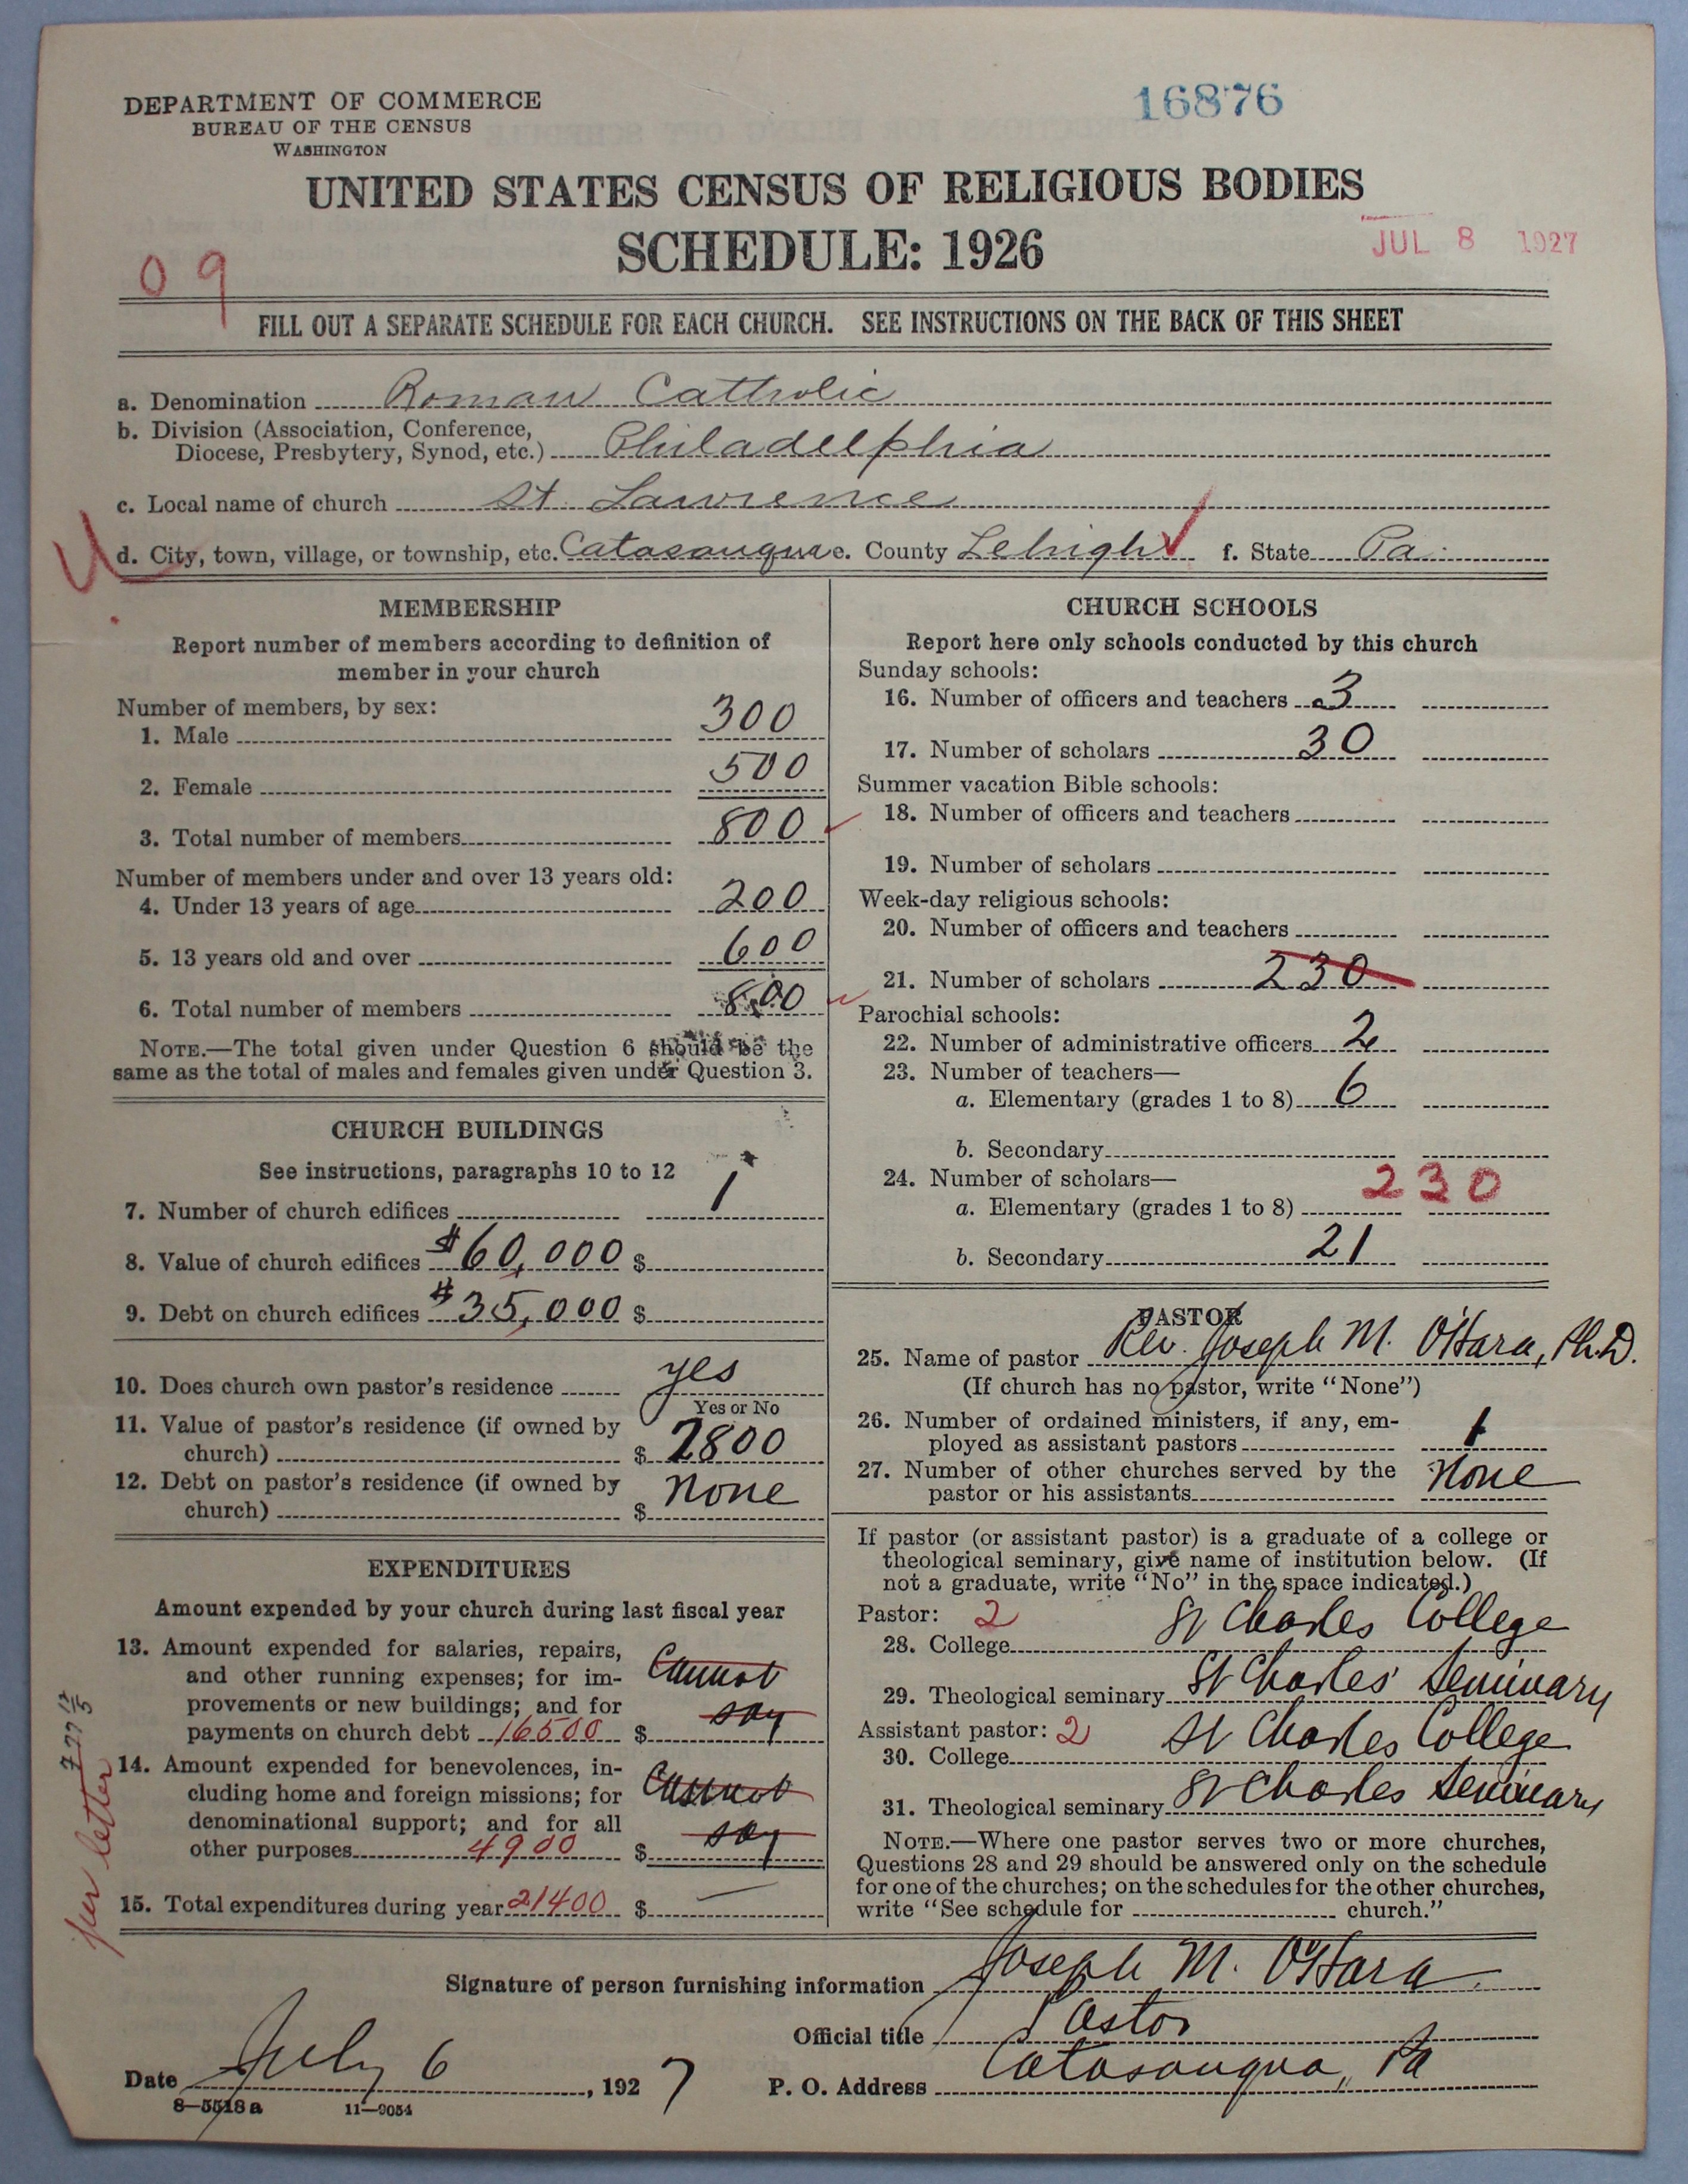 DEPARTMENT OF COMMERCE
BUREAU OF THE CENSUS
WASHINGTON
16876
UNITED STATES CENSUS OF RELIGIOUS BODIES
SCHEDULE: 1926
JUL 8 1927
09
FILL OUT A SEPARATE SCHEDULE FOR EACH CHURCH. SEE INSTRUCTIONS ON THE BACK OF THIS SHEET
a. Denomination Roman Catholic
b. Division (Association, Conference,
Diocese, Presbytery, Synod, etc.) Philadelphia
c. Local name of church St. Lawrence
d. City, town, village, or township, etc. Catasauqua e. County Lehigh f. State Pa.
MEMBERSHIP
Report number of members according to definition of
member in your church
Number of members, by sex:
1. Male 300
2. Female 500
3. Total number of members 800
Number of members under and over 13 years old:
4. Under 13 years of age 200
5. 13 years old and over 600
6. Total number of members 800
NOTE.—The total given under Question 6 should be the
same as the total of males and females given under Question 3.
CHURCH BUILDINGS
See instructions, paragraphs 10 to 12
7. Number of church edifices 1
8. Value of church edifices $60,000 $
9. Debt on church edifices $35,000 $
10. Does church own pastor's residence yes
Yes or No
11. Value of pastor's residence (if owned by
church) $ 2800
12. Debt on pastor's residence (if owned by
church) $ none
EXPENDITURES
Amount expended by your church during last fiscal year
13. Amount expended for salaries, repairs,
and other running expenses; for im-
provements or new buildings; and for
payments on church debt 16500 $ Cannot say
14. Amount expended for benevolences, in-
cluding home and foreign missions; for
denominational support; and for all
other purposes 4900 $ Cannot say
15. Total expenditures during year 21400 $ —
per letter
CHURCH SCHOOLS
Report here only schools conducted by this church
Sunday schools:
16. Number of officers and teachers 3
17. Number of scholars 30
Summer vacation Bible schools:
18. Number of officers and teachers
19. Number of scholars
Week-day religious schools:
20. Number of officers and teachers
21. Number of scholars 230
Parochial schools:
22. Number of administrative officers 2
23. Number of teachers—
a. Elementary (grades 1 to 8) 6
b. Secondary
24. Number of scholars—
a. Elementary (grades 1 to 8) 230
b. Secondary 21
PASTOR
25. Name of pastor Rev. Joseph M. O'Hara, Ph.D.
(If church has no pastor, write "None")
26. Number of ordained ministers, if any, em-
ployed as assistant pastors 1
27. Number of other churches served by the
pastor or his assistants None
If pastor (or assistant pastor) is a graduate of a college or
theological seminary, give name of institution below. (If
not a graduate, write "No" in the space indicated.)
Pastor: 2
28. College St Charles College
29. Theological seminary St Charles' Seminary
Assistant pastor: 2
30. College St Charles College
31. Theological seminary St Charles Seminary
NOTE.—Where one pastor serves two or more churches,
Questions 28 and 29 should be answered only on the schedule
for one of the churches; on the schedules for the other churches,
write "See schedule for church."
Signature of person furnishing information Joseph M. O'Hara
Official title Pastor
Date July 6, 1927 P. O. Address Catasauqua, Pa
8—5518a 11—9054